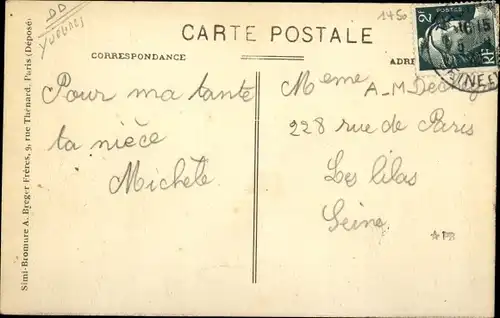 1450
CARTE POSTALE
CORRESPONDANCE
2F
POSTES
16 15
RF
Pour ma tante
ta nièce
Michèle
Meme A-M
228 rue de Paris
Les lilas
Seine
*PB
Simi-Bromure A. Breger Frères, 9, rue Thénard, Paris (Déposé)